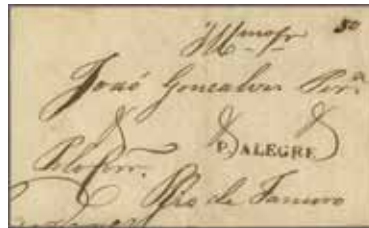 Illmo Snr 80
João Gonsalves Perª
P. ALEGRE
Pelo Corr.
Rio de Janeiro